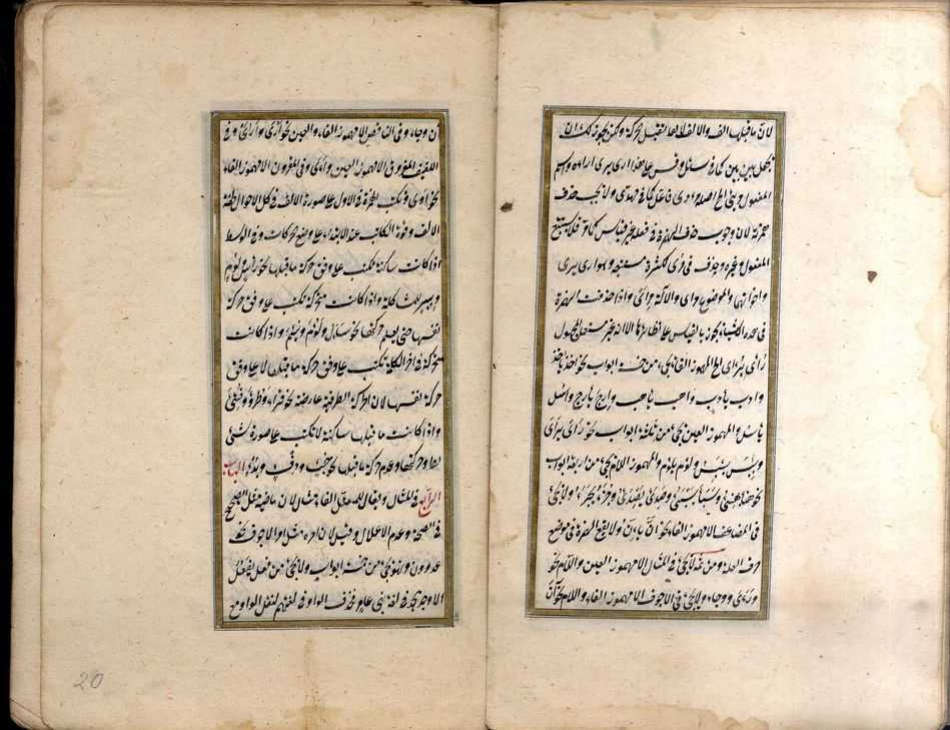 لان ما قبلها الف والالف لا يقبل الحركة ولكن يجوز لك ان
تجعل بين بين كما فى سائل وقس على هذا ارى يرى اراءة واسم
المفعول مرئى الخ اصله مرءوى فاعل كما فى مهدى ولا يجب حذف
همزته لان وجوب حذف الهمزة فى فعله غير قياس كما مر فلا يستتبع
المفعول وغيره وحذف فى مرى لكثرة مستتبعه وهو ارى يرى
واخواتهما والموضع مراى والآلة مرأى واذا حذفت الهمزة
فى هذه الاشياء يجوز بالقياس على نظائرها الا انه غير مستعمل المجهول
رئى يرى الخ المهموز الفاء يجىء من خمسة ابواب نحو اخذ ياخذ
وادب يادب واهب ياهب وارج يارج واسل
ياسل والمهموز العين يجىء من ثلثة ابواب نحو رأى يرأى
ويئس ييئس ولؤم يلؤم والمهموز اللام يجىء من اربعة ابواب
نحو هنأ يهنئ وسبأ يسبأ وصدئ يصدأ وجزؤ يجزؤ ولا يجىء
فى المضاعف الا مهموز الفاء نحو ان يئن ولا يقع الهمزة فى موضع
حرف العلة ومن ثم لا يجىء فى المثال الا مهموز العين واللام نحو
وئد ووجأ ولا يجىء فى الاجوف الا مهموز الفاء واللام نحو آن
ان وجاء وفى الناقص الا مهموز الفاء والعين نحو ارى ورأى وفى
اللفيف المفروق الا مهموز العين وأى وفى المقرون الا مهموز الفاء
نحو اوى وتكتب الهمزة فى الاول على صورة الالف فى كل الاحوال لخفة
الالف وقوة الكاتب عند الابتداء على وضع الحركات وفى الوسط
اذا كانت ساكنة تكتب على وفق حركة ما قبلها نحو رأس ولؤم
وبئر للمشاكلة واذا كانت متحركة تكتب على وفق حركة
نفسها حتى يعلم حركتها نحو سأل ولؤم وسئم واذا كانت
متحركة فى اخر الكلمة تكتب على وفق حركة ما قبلها لا على وفق
حركة نفسها لان الحركة الطرفية عارضة نحو قرأ وطرؤ وفتئ
واذا كانت ما قبلها ساكنة لا تكتب على صورة شئ
لطرو حركتها وعدم حركة ما قبلها نحو خبء ودفء وبرء الباب
الرابع فى المثال ويقال للمعتل الفاء مثال لان ماضيه مثل الصحيح
فى الصحة وعدم الاعلال وقيل لان امره مثل امر الاجوف نحو
عد وزن وهو يجىء من خمسة ابواب ولا يجىء من فعل يفعل
الا وجد يجد فى لغة بنى عامر فحذف الواو فى لغتهم لثقل الواو مع
20